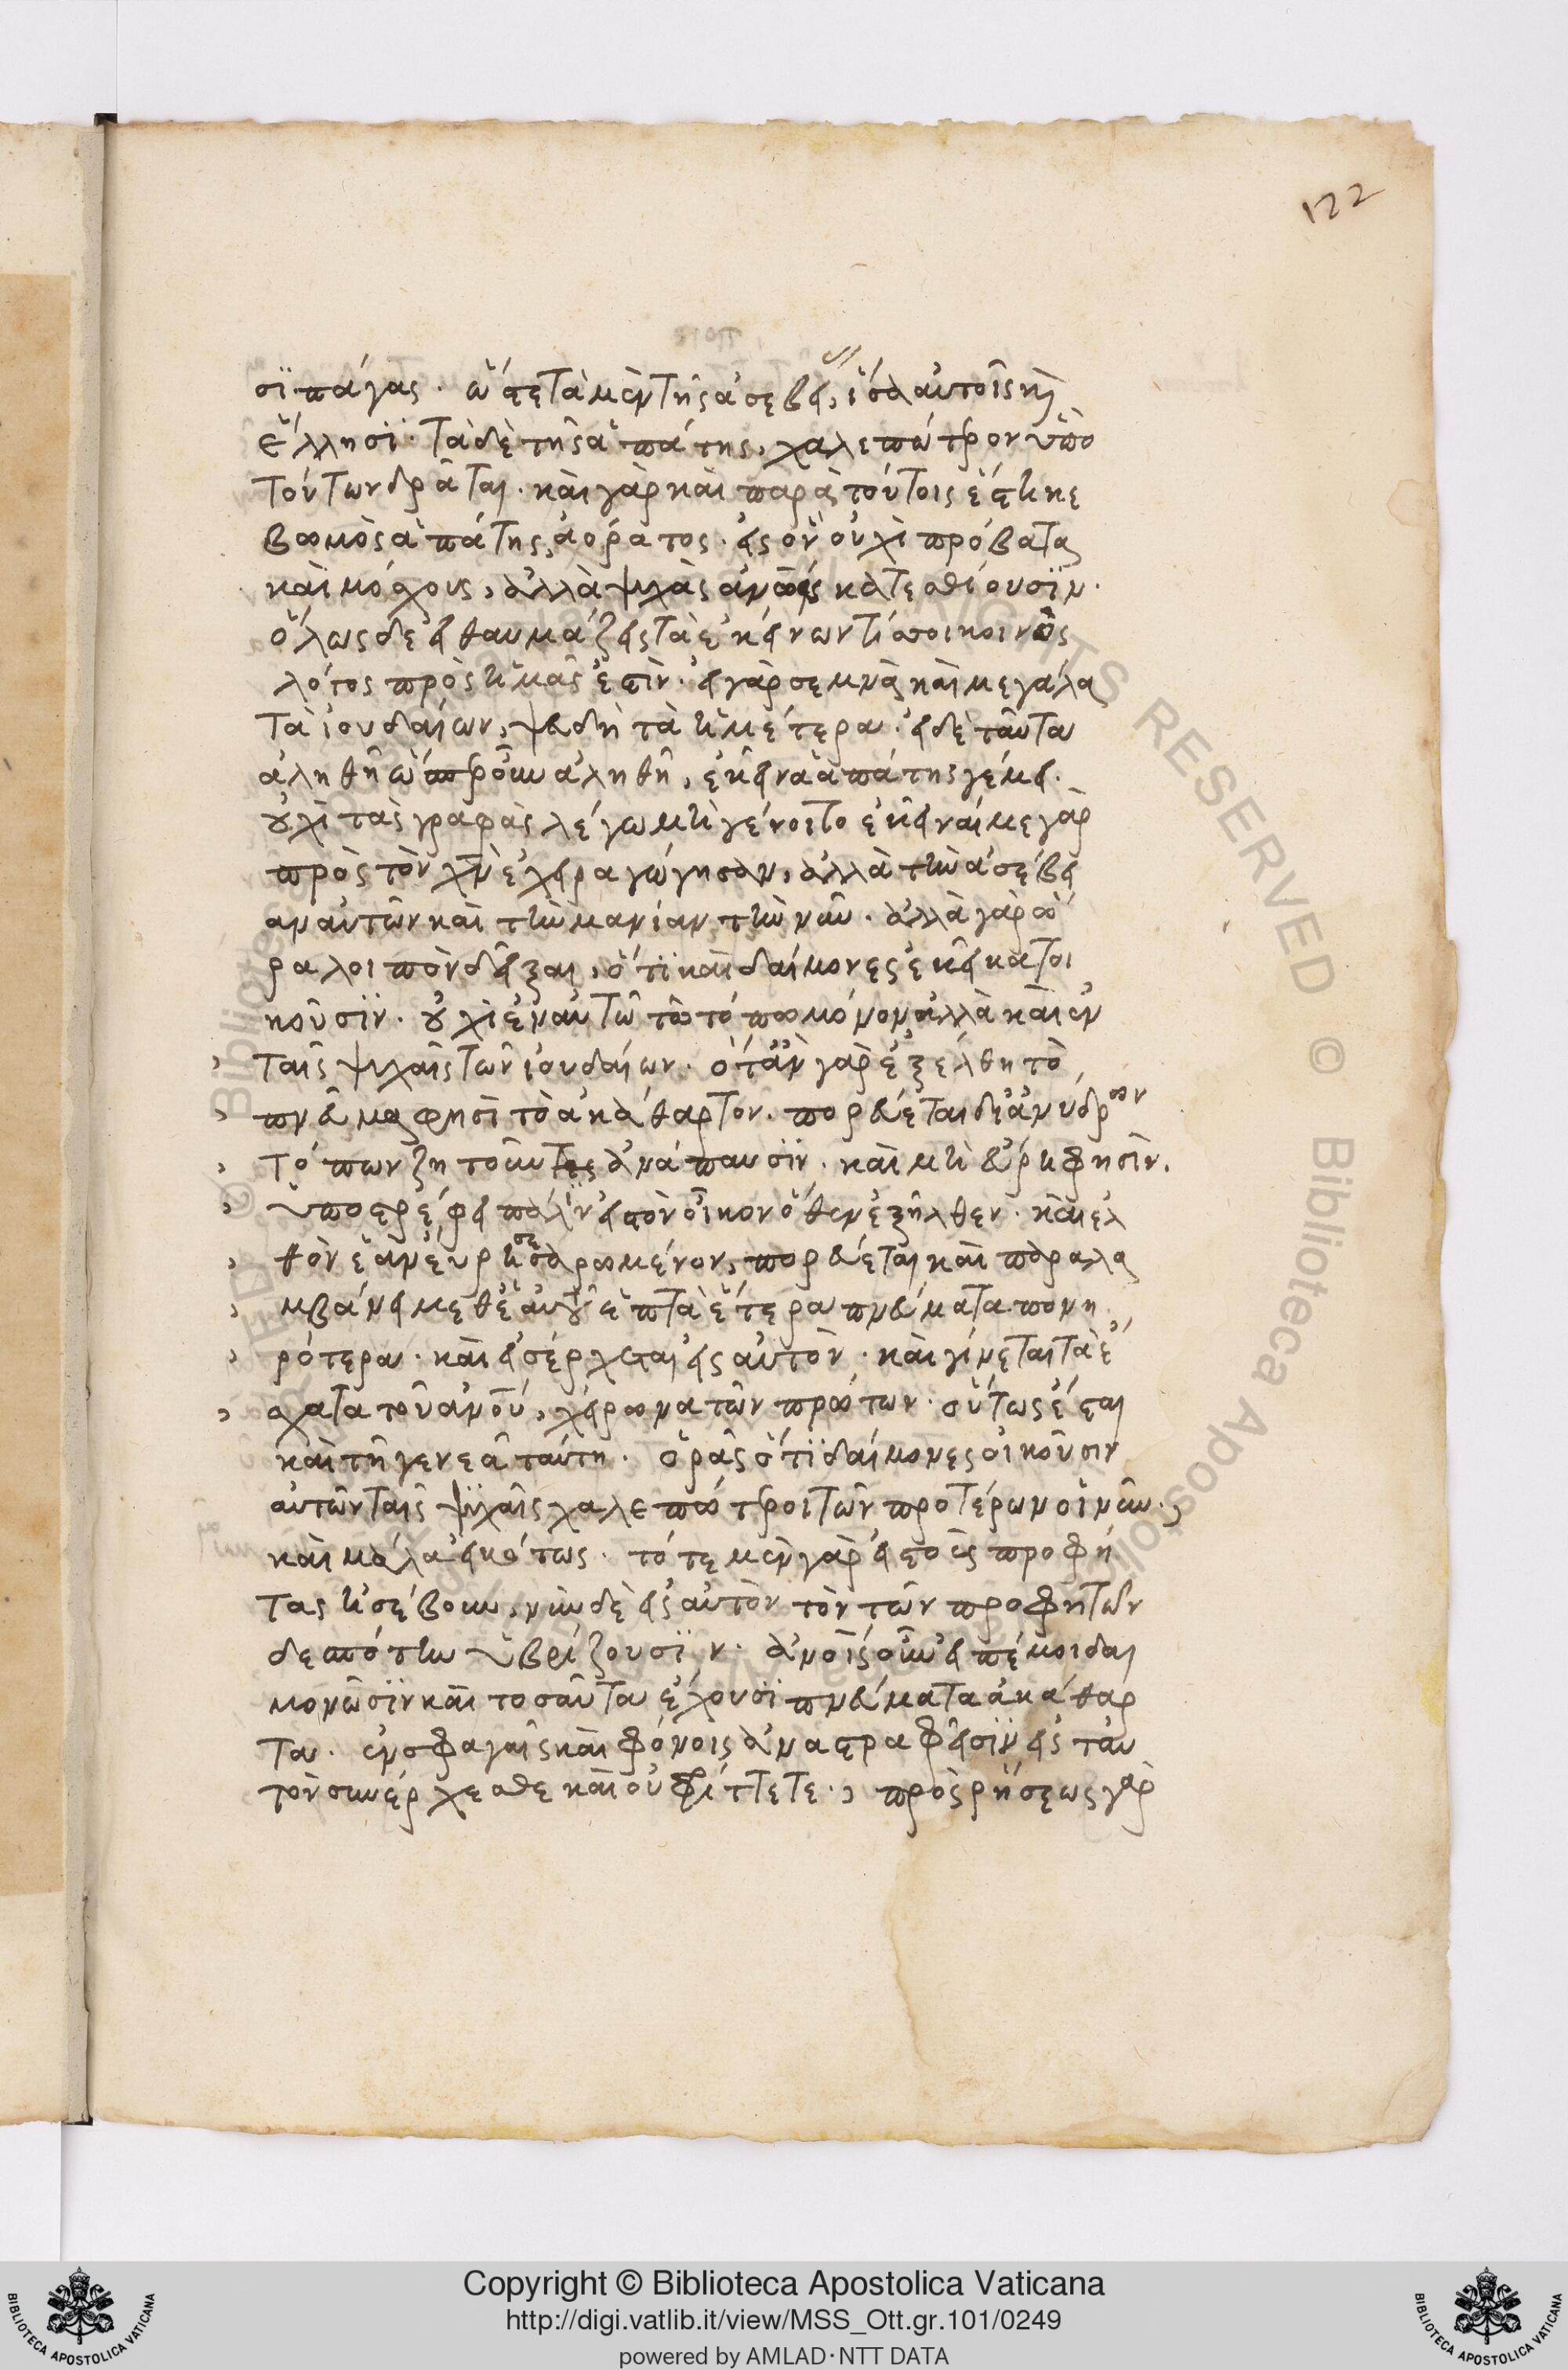 122
σϊ πάγας· ὥστε τὰ μὲν τῆς ἀσεβεί, ἴσα αὐτοῖς κὶ
ἕλλησϊ· τὰ δὲ τῆς ἀπάτης, χαλεπώτερον ὑπὸ
τούτων δρᾶται· καὶ γὰρ καὶ παρὰ τούτοις ἕστηκε
βωμὸς ἀπάτης ἀόρατος· εἰς ὃν οὐχὶ πρόβατα
καὶ μόσχους, ἀλλὰ ψυχὰς ἀνων κατεσθίουσϊν·
ὅλως δὲ εἰ θαυμάζεις τὰ ἐκείνων τί σοι κοινὸς
λόγος πρὸς ἡμᾶς ἐστὶν· εἰ γὰρ σεμνὰ καὶ μεγάλα
τὰ ἰουδαίων, ψευδῆ τὰ ἡμέτερα· εἰ δὲ ταῦτα
ἀληθῆ ὥσπερ οὖν ἀληθῆ, ἐκεῖνα ἀπάτης γέμει·
οὐχὶ τὰς γραφὰς λέγω μὴ γένοιτο ἐκεῖναί με γὰρ
πρὸς τὸν χν ἐχειραγώγησαν, ἀλλὰ τὴν ἀσέβει
αν αὐτῶν καὶ τὴν μανίαν τὴν νῦν· ἀλλὰ γὰρ ὥ
ρα λοιπὸν δεῖξαι, ὅτϊ καὶ δαίμονες ἐκεῖ κατοι
κοῦσϊν· οὐχὶ ἐν αὐτῶ τῶ τόπω μόνον ἀλλὰ καὶ ἐν
ταῖς ψυχαῖς τῶν ἰουδαίων· ὅτὰν γὰρ ἐξέλθη τὸ
πνευμα φησὶ τὸ ἀκάθαρτον· πορεύεται δι ἀνύδρων
τόπων ζητοῦν ἀνάπαυσϊν· καὶ μὴ εὕρη φησὶν·
ὑποστρέψει πάλϊν εἰς τὸν οἶκον ὅθεν ἐξῆλθεν· καὶ ἐλ
θὸν ἐὰν εὕρη σεσαρωμένον, πορεύεται καὶ παραλα
μβάνει μεθ ἑαυτοῦ ἑπτὰ ἕτερα πνεύματα πονη
ρότερα· καὶ εἰσέρχεται εἰς αὐτὸν· καὶ γίνεται τὰ ἔ
σχατα τοῦ ἀνου, χείρωνα τῶν πρώτων· οὕτως ἔσται
καὶ τῆ γενεᾶ ταύτη· ὁρᾶς ὅτϊ δαίμονες οἰκοῦσιν
αὐτῶν ταῖς ψυχαῖς χαλεπώτεροι τῶν προτέρων οἱ νῦν·,
καὶ μάλα εἰκότως· τότε μὲν γὰρ εἰς τοὺς προφή
τας ἠσέβουν, νῦν δὲ εἰς αὐτὸν τὸν τῶν προφητῶν
δεσπότην ὑβρίζουσϊν· ἀνοῖς οὖν εἰπέ μοι δαι
μονῶσϊν καὶ τοσαῦτα ἔχουσϊ πνεύματα ἀκάθαρ
τα· ἐν σφαγαῖς καὶ φόνοις ἀναστραφεῖσϊν εἰς ταυ
τὸν συνέρχεσθε καὶ οὐ φρίττετε·, πρὸς ρήσεως γὰρ
Copyright © Biblioteca Apostolica Vaticana
http://digi.vatlib.it/view/MSS_Ott.gr.101/0249
powered by AMLAD·NTT DATA